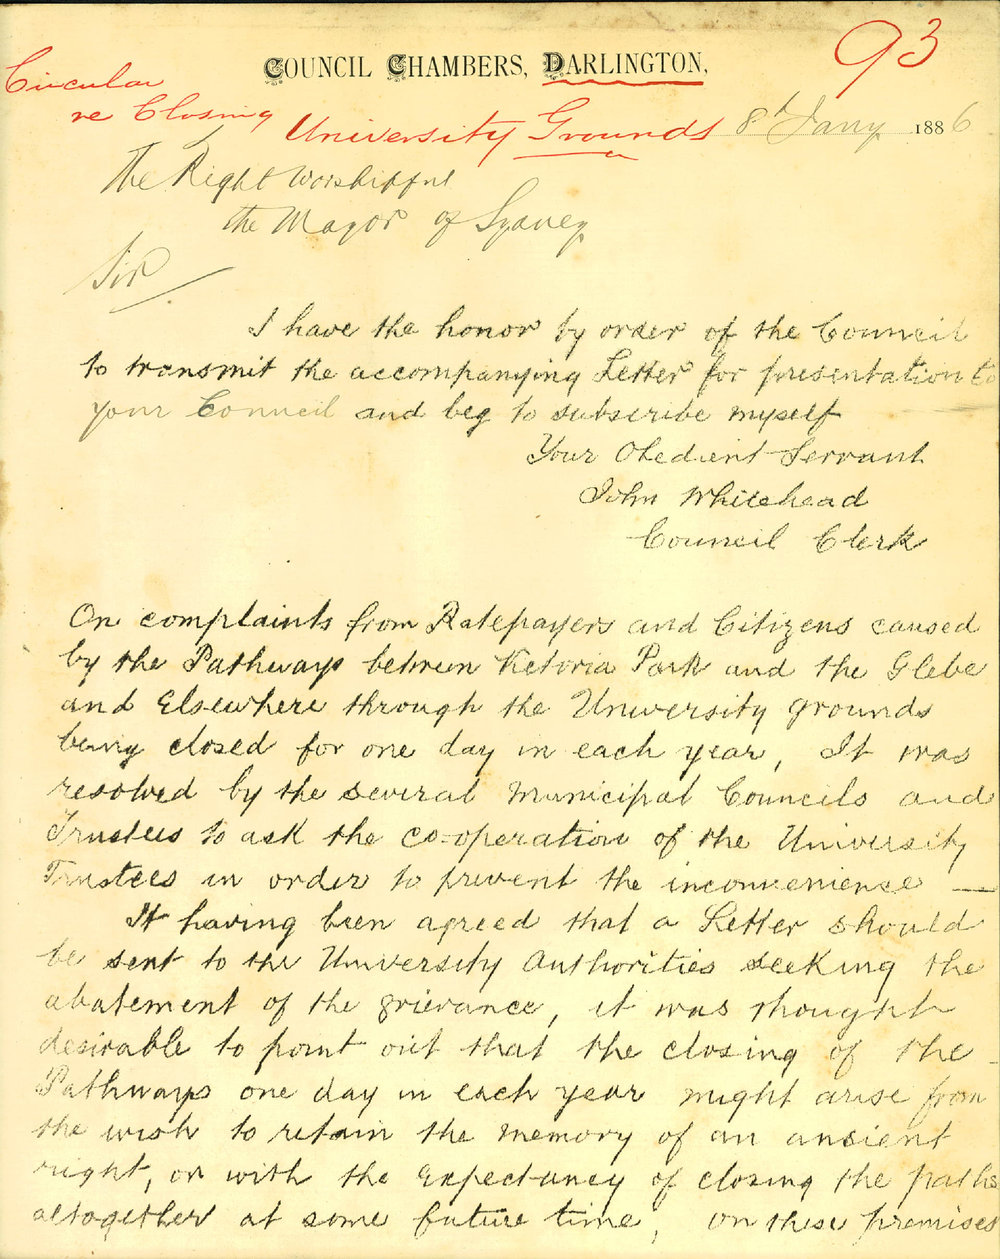 93
Circular
re Closing
COUNCIL CHAMBERS, DARLINGTON,
University Grounds 8th Jany 1886
The Right Worshipful
the Mayor of Sydney
Sir
I have the honor by order of the Council
to transmit the accompanying Letter for presentation to
your Council and beg to subscribe myself
Your Obedient Servant
John Whitehead
Council Clerk
On complaints from Ratepayers and Citizens caused
by the Pathways between Victoria Park and the Glebe
and Elsewhere through the University grounds
being closed for one day in each year, It was
resolved by the several Municipal Councils and
Trustees to ask the co-operation of the University
Trustees in order to prevent the inconvenience —
It having been agreed that a Letter should
be sent to the University Authorities seeking the
abatement of the grievance, it was thought
desirable to point out that the closing of the
Pathways one day in each year might arise from
the wish to retain the memory of an ancient
right, or with the Expectancy of closing the paths
altogether at some future time, on these premises